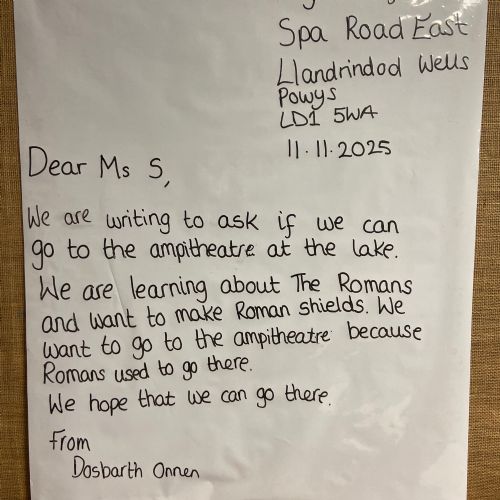 Spa Road East
Llandrindod Wells
Powys
LD1 5WA
11.11.2025
Dear Ms S,
We are writing to ask if we can
go to the ampitheatre at the lake.
We are learning about The Romans
and want to make Roman shields. We
want to go to the ampitheatre because
Romans used to go there.
We hope that we can go there.
From
Dosbarth Onnen